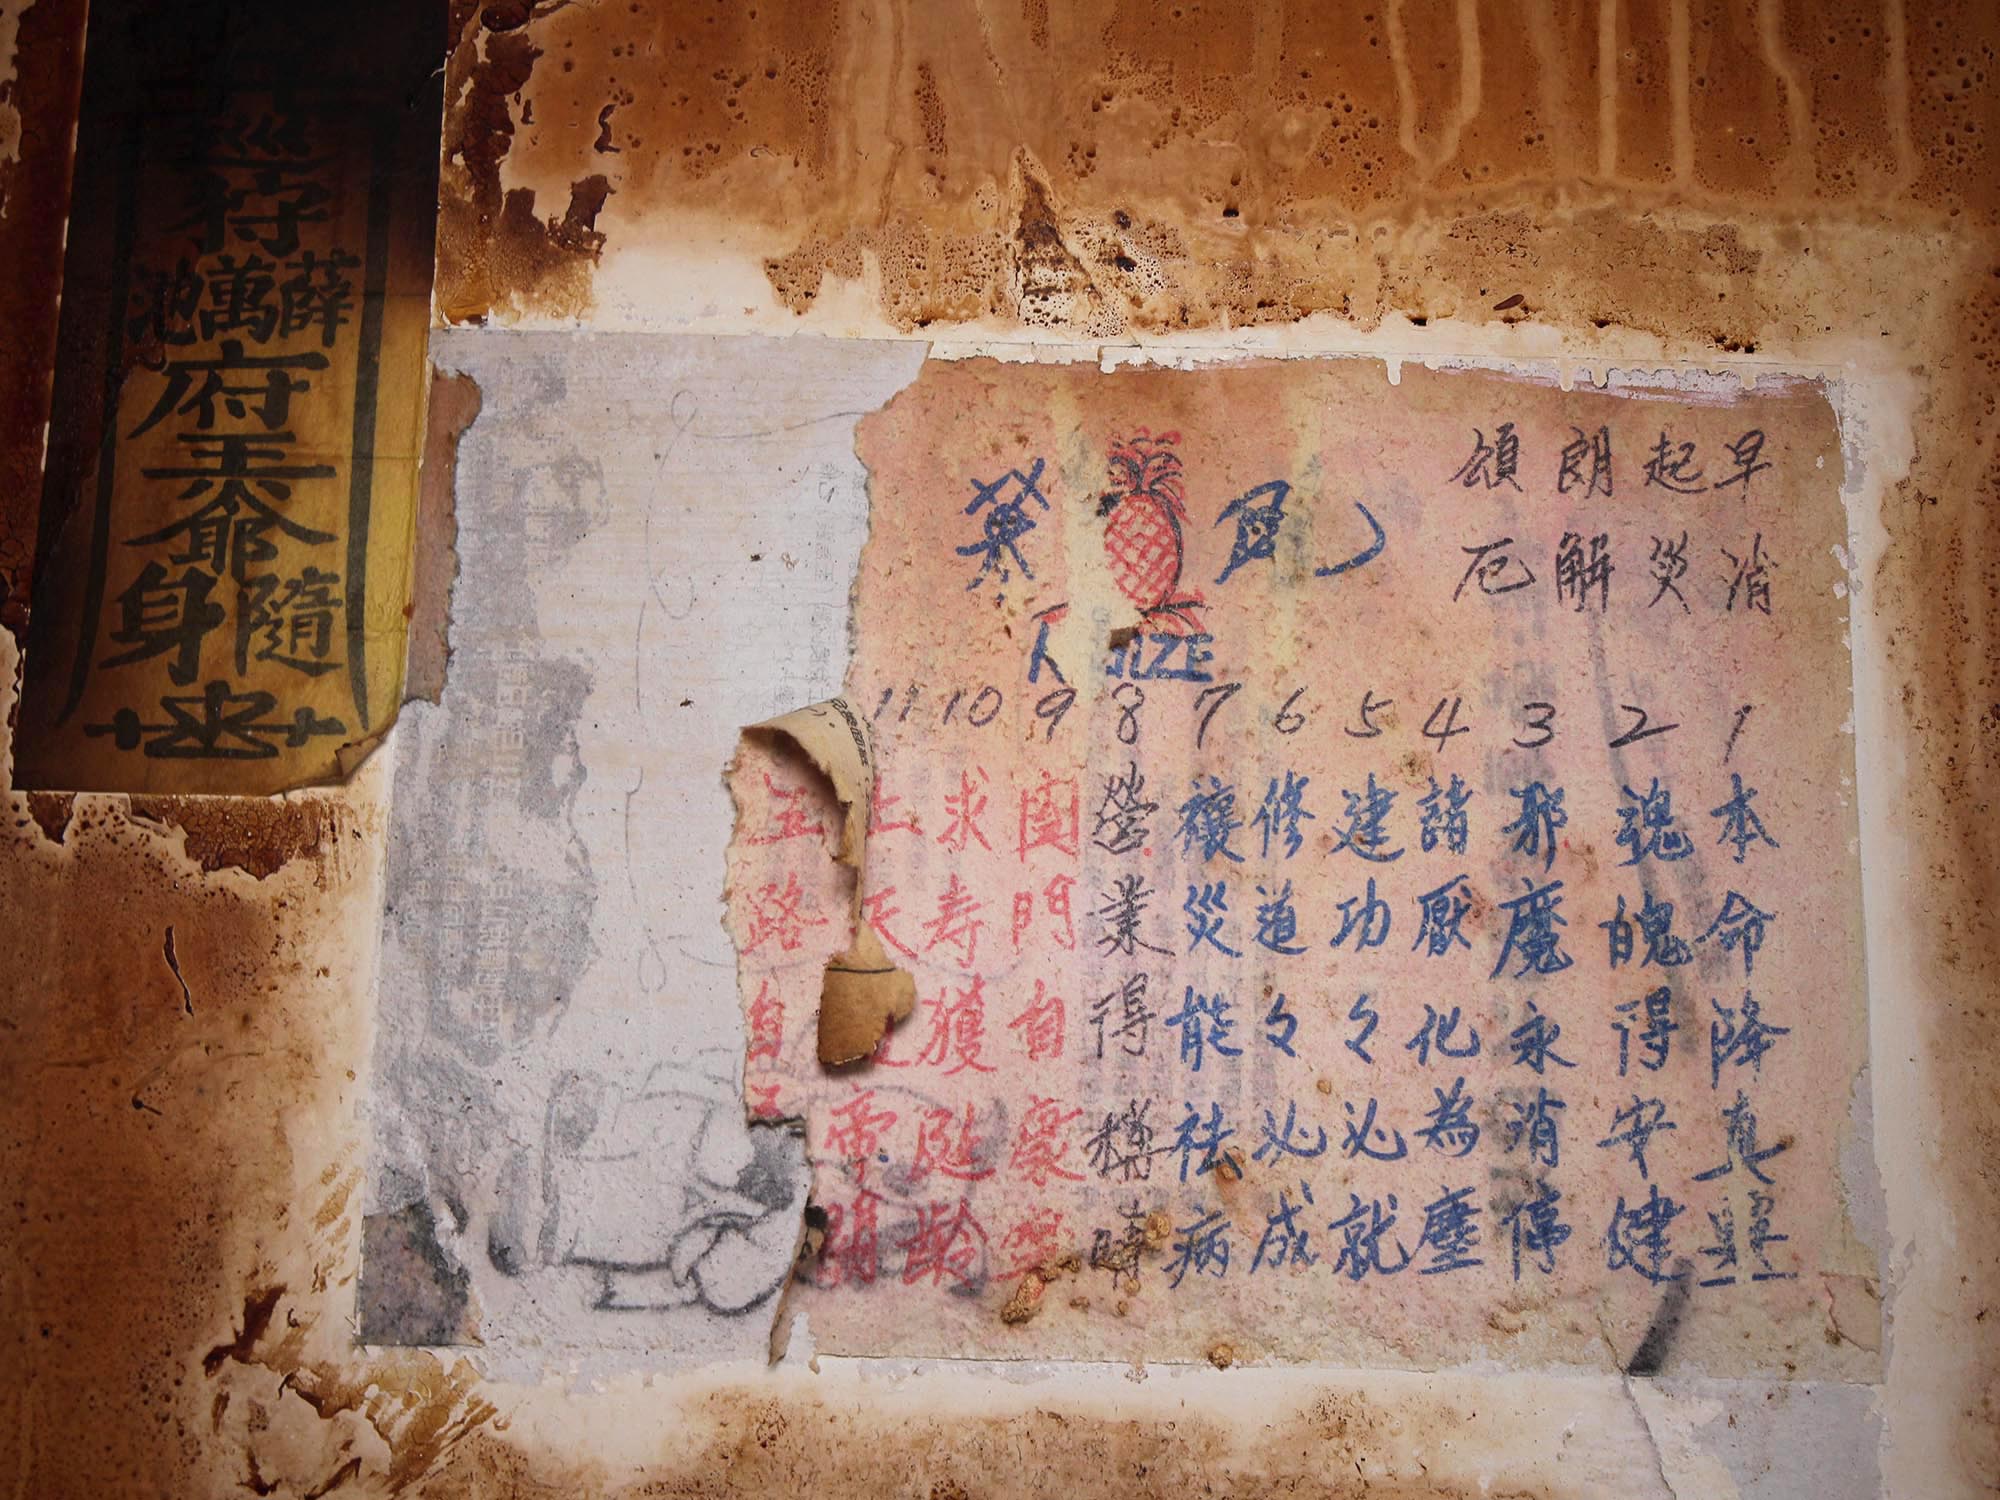 早起朗頌
消災解厄
鳳
英
1 本命降真靈
2 魂魄得安健
3 邪魔永消停
4 諸厭化為塵
5 建功々必就
6 修道々必成
7 禳災能祛病
8 營業得構時
9 闔門自豪
10 求寿獲延齡
11 上天
帝
路自
巡狩
薛萬池
府王爺
隨身